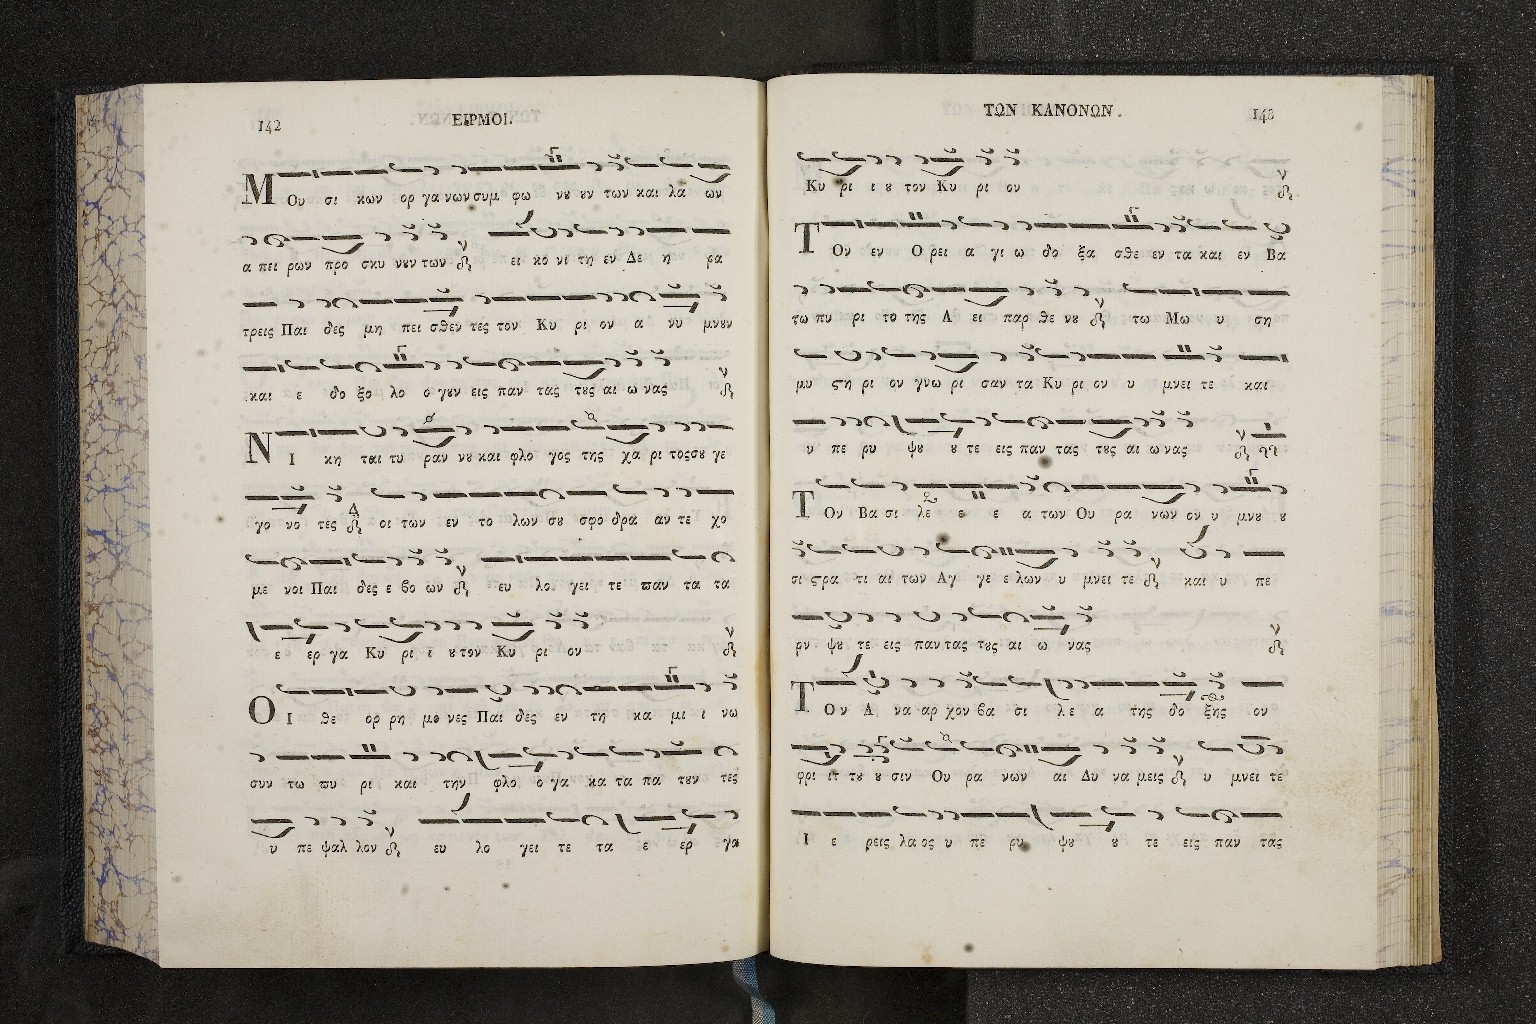 142 ΕΙΡΜΟΙ.
ΜΟυ σι κων ορ γα νων συμ φω νȣ ȣν των και λα ων
α πει ρων προ σκυ νȣν των ει κο νι τη εν Δε η ρα
τρεις Παι δες μη πει σθεν τες τον Κυ ρι ον α νυ μνȣν
και ε δο ξο λο ο γȣν εις παν τας τȣς αι ω νας
ΝΙ κη ται τυ ραν νȣ και φλο γος της χα ρι τος σȣ γε
γο νο τες οι των εν το λων σȣ σφο δρα αν τε χο
με νοι Παι δες ε βο ων ευ λο γει τε παν τα τα
ε ερ γα Κυ ρι ι ȣ τον Κυ ρι ον
ΟΙ θε ορ ρη μο νες Παι δες εν τη κα μι ι νω
συν τω πυ ρι και την φλο ο γα κα τα πα τȣν τες
υ πε ψαλ λον ευ λο γει τε τα ε ερ γα
ΤΩΝ ΚΑΝΟΝΩΝ. 143
Κυ ρι ι ȣ τον Κυ ρι ον
ΤΟν εν Ο ρει α γι ω δο ξα σθε εν τα και εν Βα
τω πυ ρι το της Α ει παρ θε νȣ τω Μω υ ση
μυ ςη ρι ον γνω ρι σαν τα Κυ ρι ον υ μνει τε και
υ πε ρυ ψȣ ȣ τε εις παν τας τȣς αι ω νας
ΤΟν Βα σι λε ε ε α των Ου ρα νων ον υ μνȣ ȣ
σι ςρα τι αι των Αγ γε ε λων υ μνει τε και υ πε
ρυ ψȣ τε εις παν τας τȣς αι ω νας
ΤΟν Α να αρ χον βα σι λε α της δο ξης ον
φρι ιτ τȣ ȣ σιν Ου ρα νων αι Δυ να μεις υ μνει τε
Ι ε ρεις λα ος υ πε ρυ ψȣ ȣ τε εις παν τας